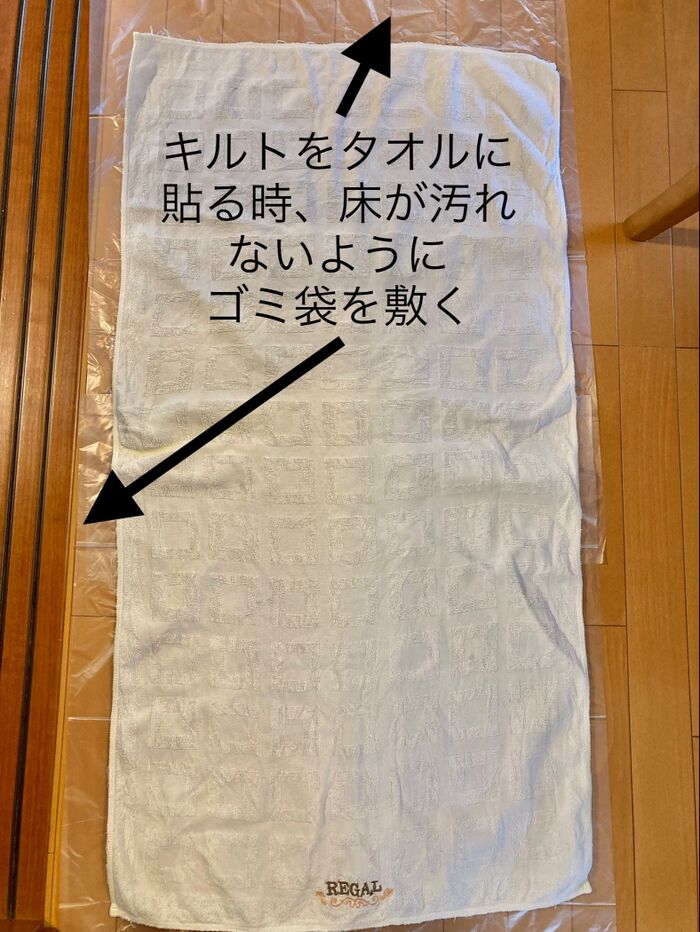 キルトをタオルに
貼る時、床が汚れ
ないように
ゴミ袋を敷く
REGAL